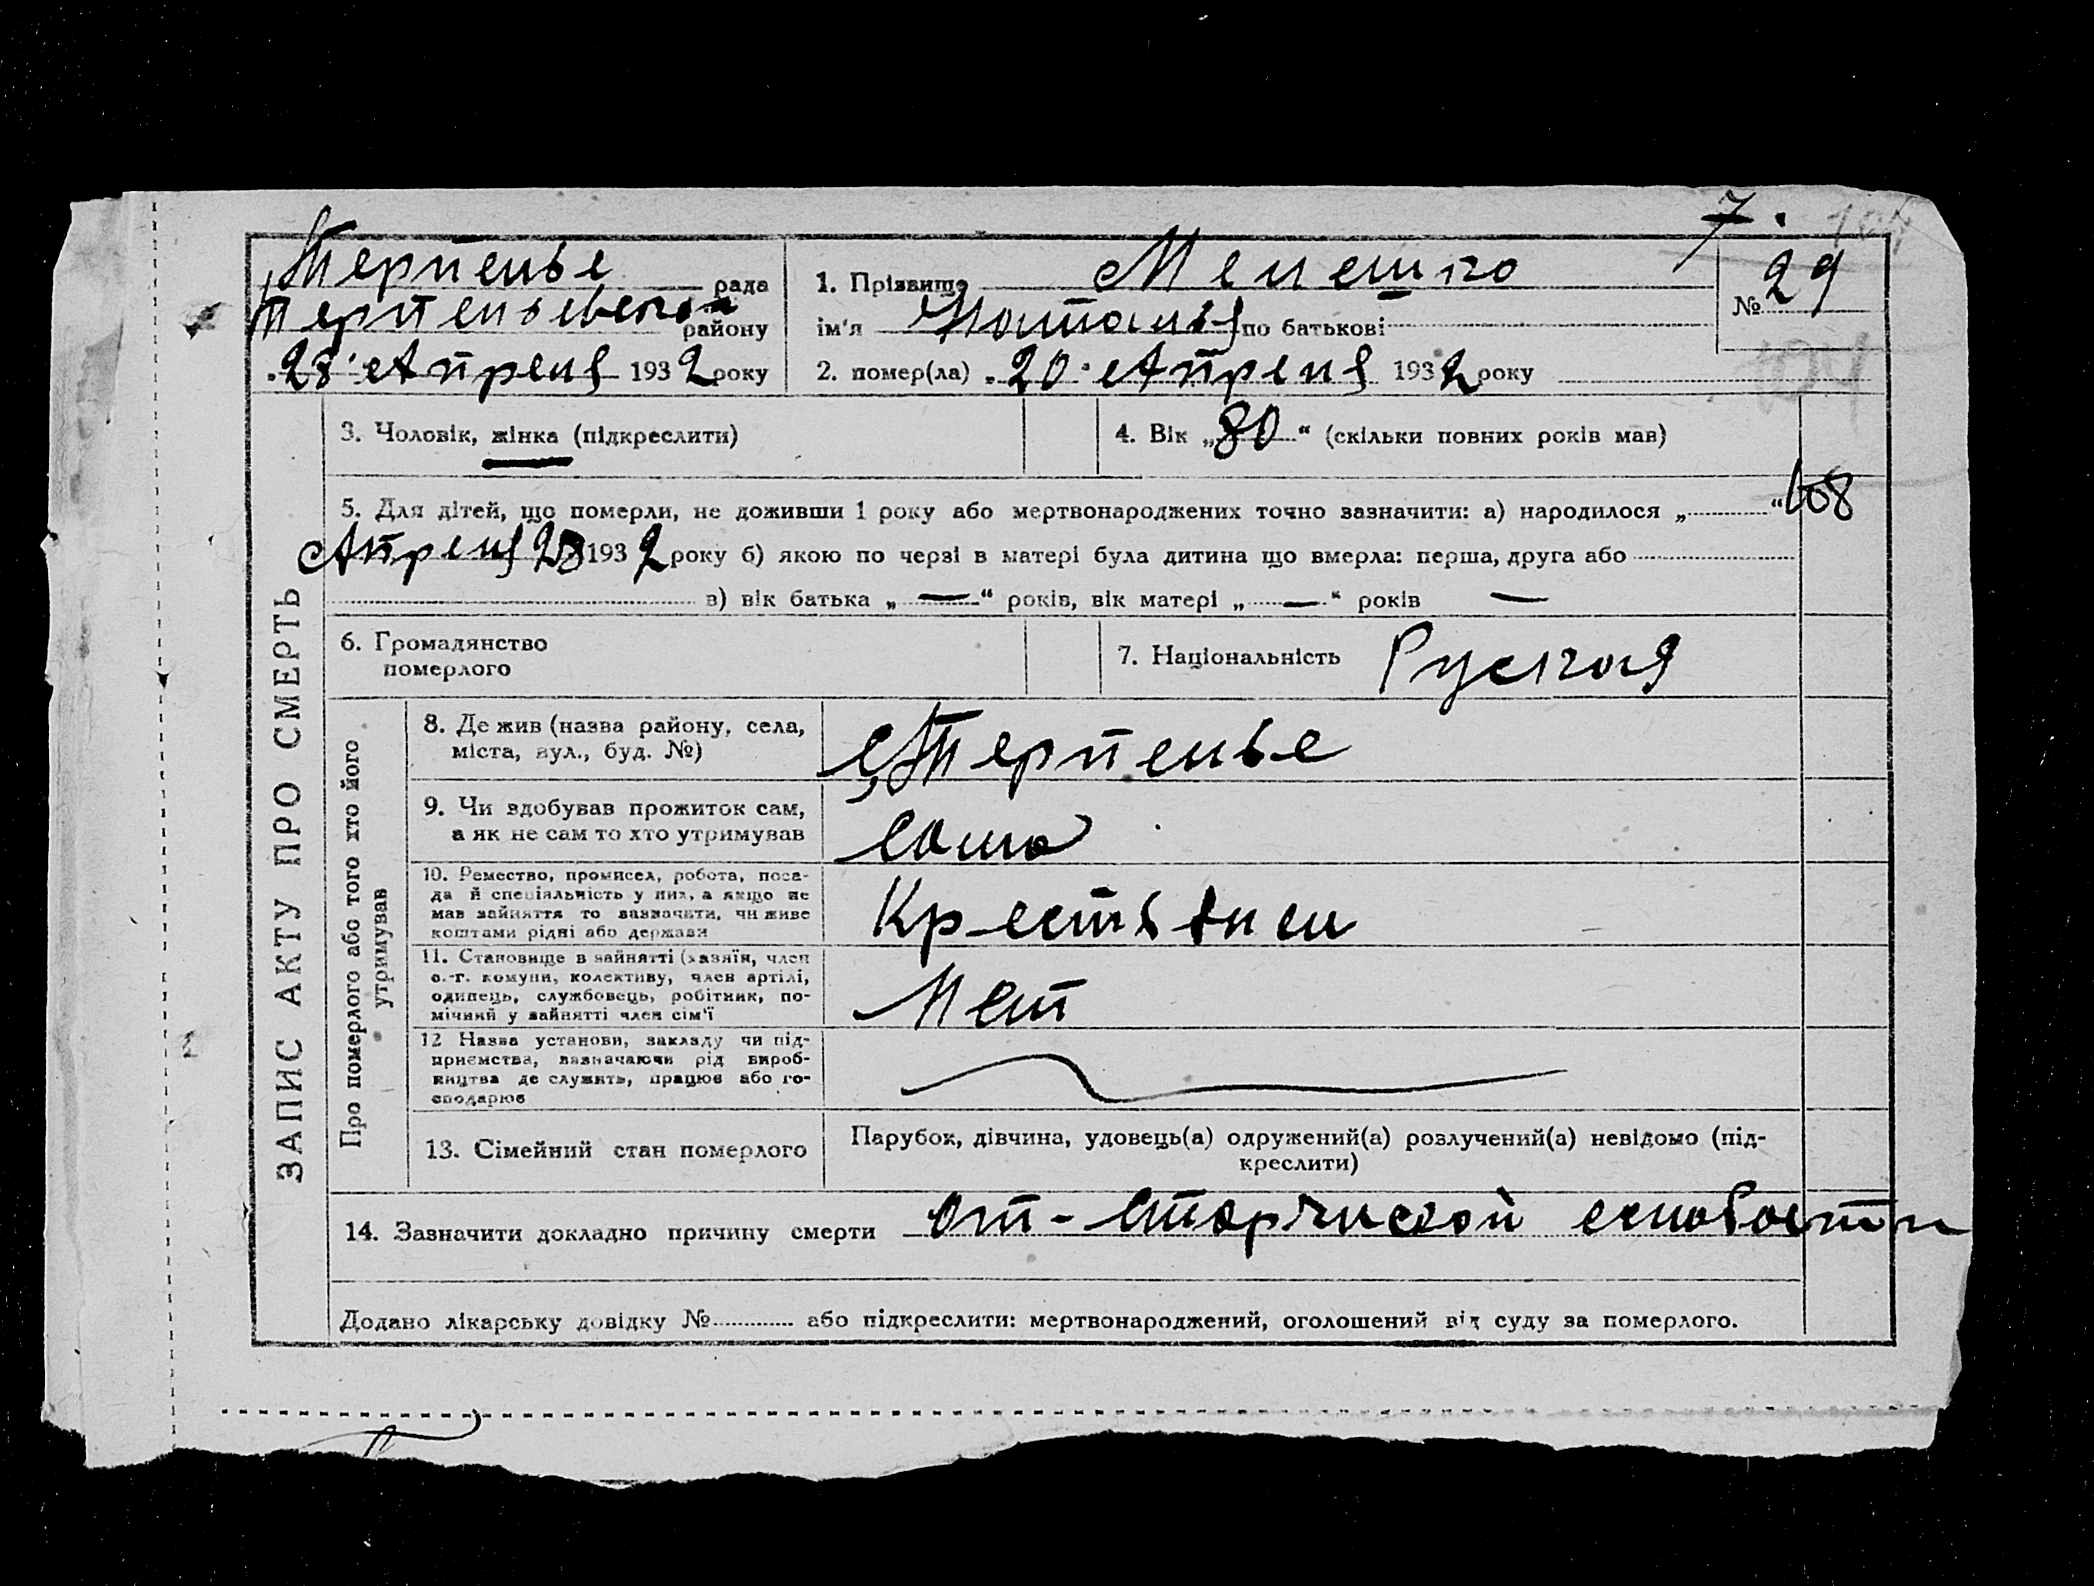 7.
Терпенье рада
района
28 Апреля 1932 року
1. Прізвище
ім'я Наталья по батькові
2. помер(ла) „20" Апреля 1932 року
№ 29
ЗАПИС АКТУ ПРО СМЕРТЬ
3. Чоловік, жінка (підкреслити)
4. Вік „80" (скільки повних років мав)
5. Для дітей, що померли, не доживши 1 року або мертвонароджених точно зазначити: а) народилося „ "
108
Апреля 28 1932 року б) якою по черзі в матері була дитина що вмерла: перша, друга або
в) вік батька „—" років, вік матері „—" років —
6. Громадянство
померлого
7. Національність Руская
Про померлого або того хто його
утримував
8. Де жив (назва району, села,
міста, вул., буд. №)
с. Терпенье
9. Чи здобував прожиток сам,
а як не сам то хто утримував
сама
10. Ремество, промисел, робота, поса-
да й спеціяльність у них, а якщо не
мав зайняття то зазначити, чи живе
коштами рідні або держави
11. Становище в зайнятті (хазяїн, член
с.-г. комуни, колективу, член артілі,
одинець, службовець, робітник, по-
мічний у зайнятті член сім'ї
Нет
12 Назва установи, закладу чи під-
приємства, зазначаючи рід вироб-
ництва де служить, працює або го-
сподарює
13. Сімейний стан померлого
Парубок, дівчина, удовець(а) одружений(а) розлучений(а) невідомо (під-
креслити)
14. Зазначити докладно причину смерти от-
Додано лікарську довідку № або підкреслити: мертвонароджений, оголошений від суду за померлого.